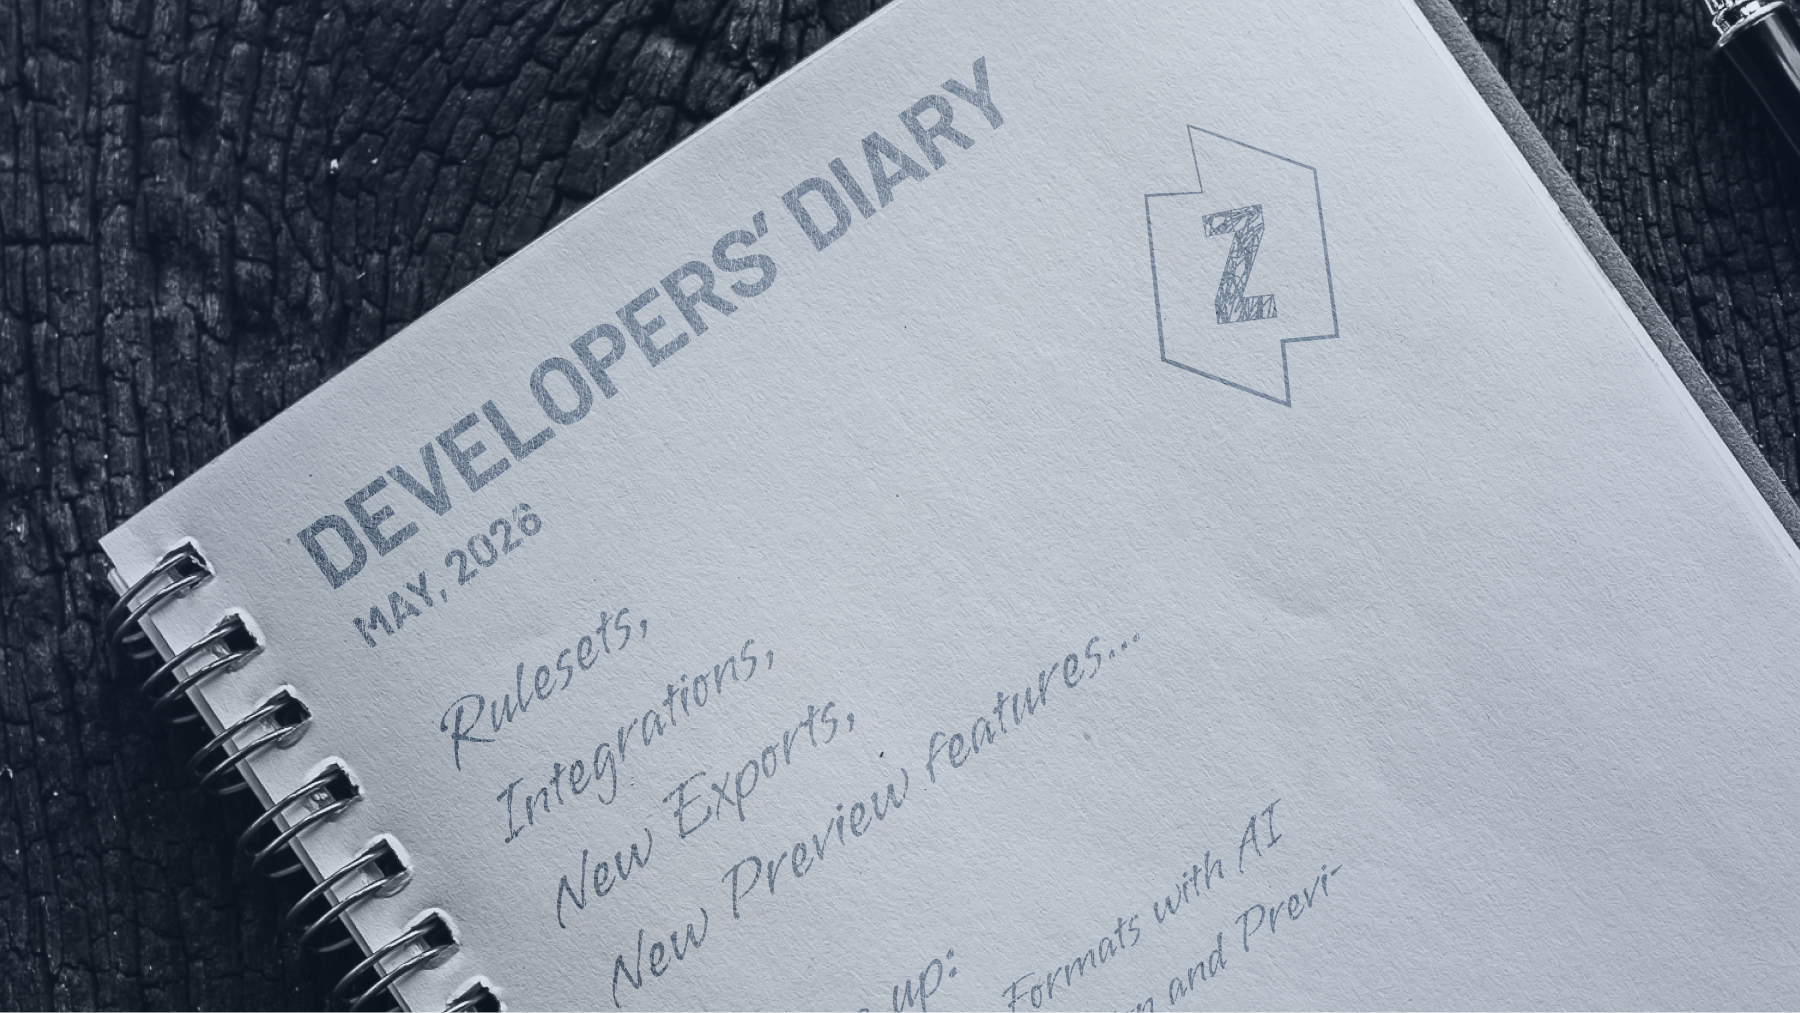 DEVELOPERS' DIARY
Z
MAY, 2026
Rulesets,
Integrations,
New Exports,
New Preview features...
up:
Formats with AI
and Previ-